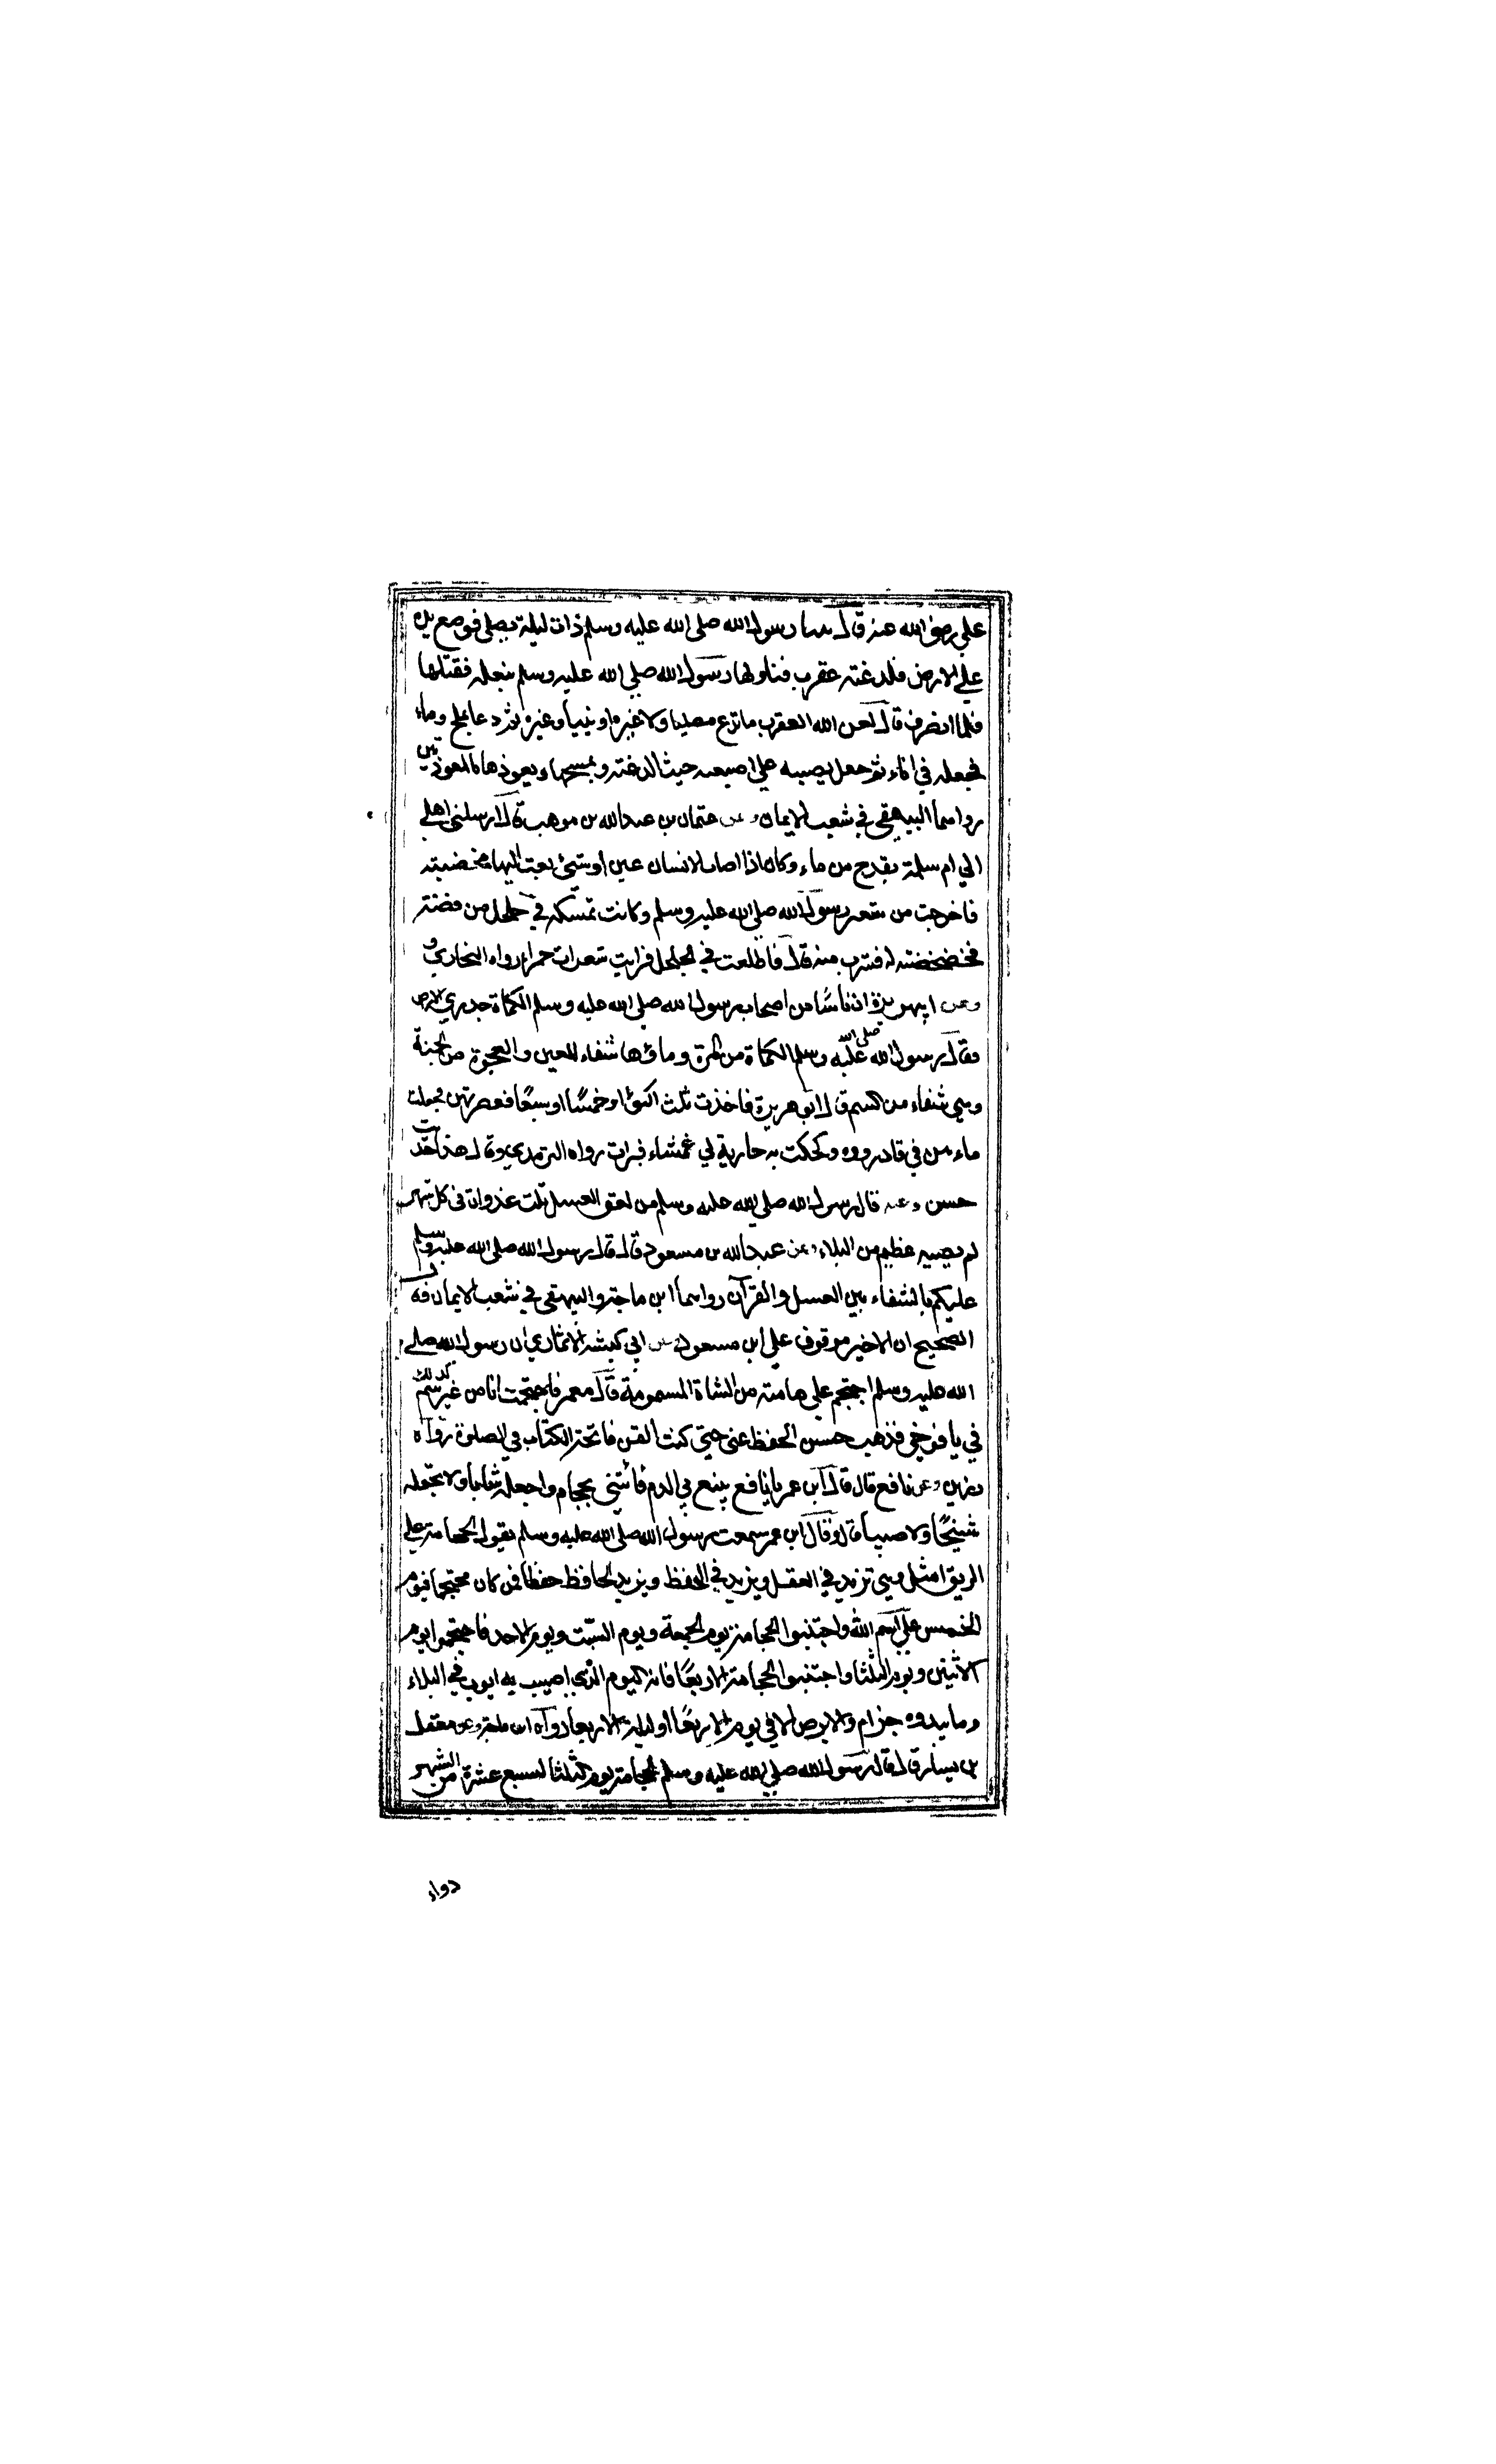 علي رضي الله عنه قال بينا رسول الله صلى الله عليه وسلم ذات ليلة يصلي فوضع يده
علي الارض فلدغته عقرب فناولها رسول الله صلي الله عليه وسلم بنعله فقتلها
فلما انصرف قال لعن الله العقرب ما تدع مصليا ولا غيره او نبيا وغيره ثم دعا بملح وماء
فجعله في اناء ثم جعل يصبه علي اصبعه حيث لدغته ويمسحها ويعوذها بالمعوذتين
رواهما البيهقي في شعب الايمان وعن عثمان بن عبد الله بن موهب قال ارسلني اهلي
الي ام سلمة بقدح من ماء وكان اذا اصاب الانسان عين أو شئ بعث اليها مخضبته
فاخرجت من شعر رسول الله صلي الله عليه وسلم وكانت تمسكه في جلجل من فضة
فخضخضته له فشرب منه قال فاطلعت في الجلجل فرايت شعرات حمراء رواه البخاري
وعن ابي هريرة ان ناسًا من اصحاب رسول الله صلي الله عليه وسلم الكماة جدري الارض
فقال رسول الله صلي الله عليه وسلم الكماة من المن وماؤها شفاء للعين والعجوة من الجنة
وهي شفاء من السم قال ابو هريرة فاخذت ثلث اكمؤ او خمسًا او سبعًا فعصرتهن فجعلت
ماءهن في قارورة وكحلت به جارية لي عمشاء فبرات رواه الترمذي وقال هذا حديث
حسن وعنه قال رسول الله صلي الله عليه وسلم من لعق العسل ثلث غدوات في كل شهر
لم يصبه عظيم من البلاء وعن عبد الله بن مسعود قال قال رسول الله صلي الله عليه وسلم
عليكم بالشفاء بين العسل والقرآن رواهما ابن ماجة والبيهقي في شعب الايمان قال
الصحيح ان الاخير موقوف علي ابن مسعود وعن ابي كبشة الانماري ان رسول الله صلي
الله عليه وسلم احتجم علي هامته من الشاة المسمومة قال معمر فاحتجمت انا من غير سم كذلك
في يافوخي فذهب حسن الحفظ عني حتي كنت القن فاتحة الكتاب في الصلوة رواه
رزين وعن نافع قال قال ابن عمر يا نافع ينبع بي الدم فأتني بحجام واجعله شابا ولا تجعله
شيخًا ولا صبيا قال وقال ابن عمر سمعت رسول الله صلى الله عليه وسلم يقول الحجامة علي
الريق امثل وهي تزيد في العقل ويزيد في الحفظ ويزيد الحافظ حفظا فمن كان محتجما فيوم
الخميس علي اسم الله واجتنبوا الحجامة يوم الجمعة ويوم السبت ويوم الاحد فاحتجموا يوم
الاثنين ويوم الثلثا واجتنبوا الحجامة الاربعًا فانه اليوم الذي اصيب به ايوب في البلاء
وما يبدو جذام ولا برص الا في يوم الاربعًا او ليلة الاربعا رواه ابن ماجة وعن معقل
بن يسار قال قال رسول الله صلي الله عليه وسلم الحجامة يوم الثلثا لسبع عشرة من الشهر
دواء